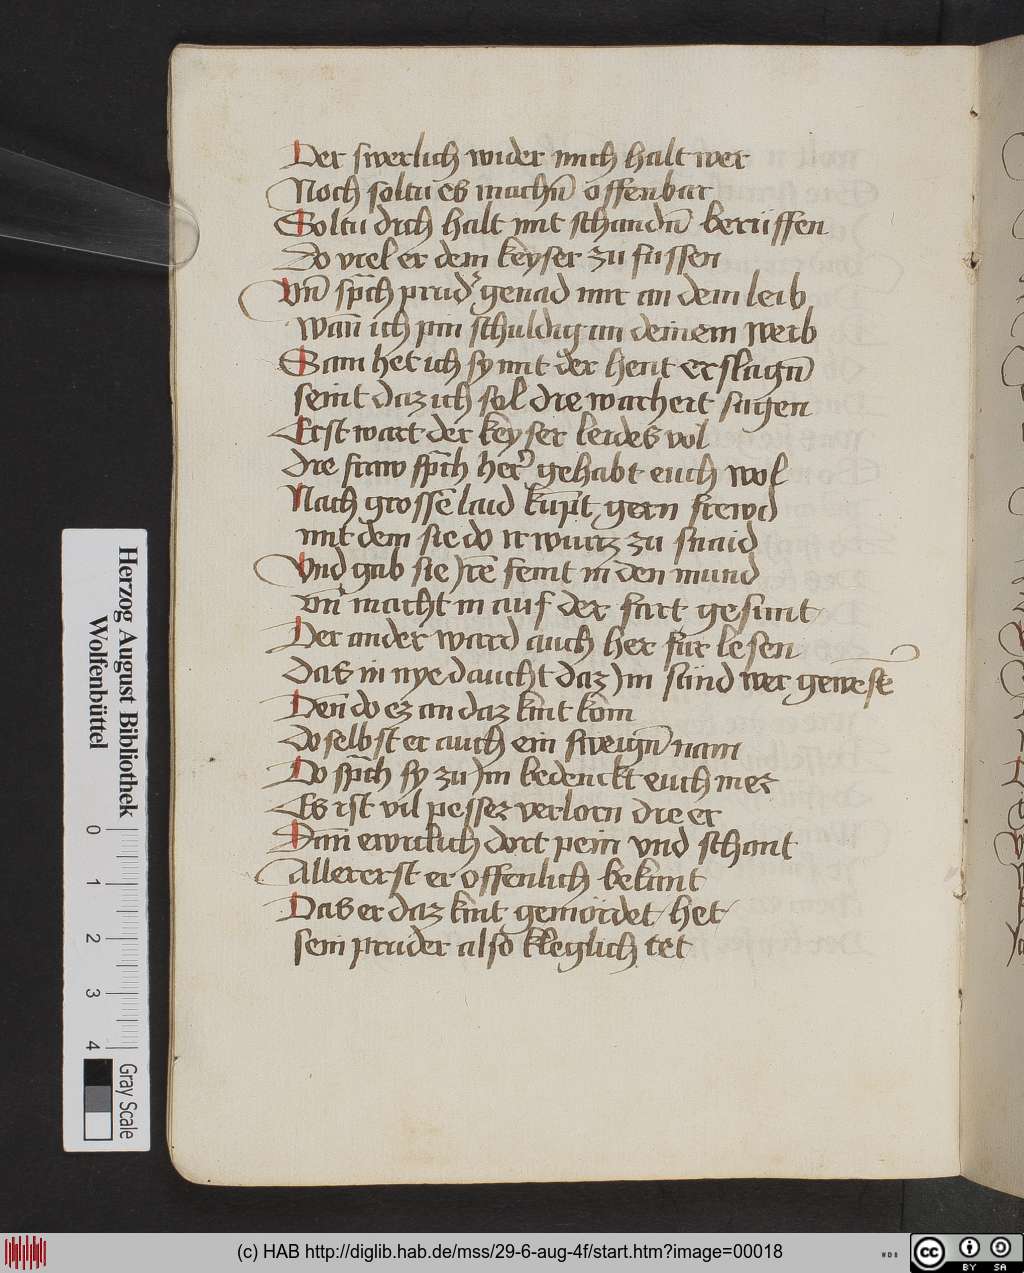 Der swerlich wider mich halt wer
Noch soltu es machn̄ offenbar
Soltu dich halt mit schandn̄ beruffen
Do viel er dem keyser zu fussen
Vn̄ sp̄ch prud' genad mir an dem leib
wan̄ ich pin schuldig an deinem weib
Sam het ich sy mit der hent erslagn̄
seint daz ich sol die warheit sagen
Erst wart der keyser leides vol
die fraw sp̄ch her' gehabt euch wol
Nach grossē laid kūpt gern frewd
mit dem sie do ir wurcz zu snaid
Vnd gab sie yrē feint in den mund
vn̄ macht in auf der fart gesunt
Der ander ward auch her fur lesen
Das in nye daucht daz ym sund wer gewestē
Den̄ do ez an daz kint kom
Do selbst er auch ein sweign̄ nam
Do sp̄ch sy zu ym bedenckt euch mer
Es ist vil pesser verlorn die er
Dan̄ ewiclich dort pein vnd schant
Allererst er offenlich bekant
Das er daz kint gemördet het
sein pruder also kleglich tet
Herzog August Bibliothek
Wolfenbüttel
0 1 2 3 4
Gray Scale
(c) HAB http://diglib.hab.de/mss/29-6-aug-4f/start.htm?image=00018
WDB
cc BY SA